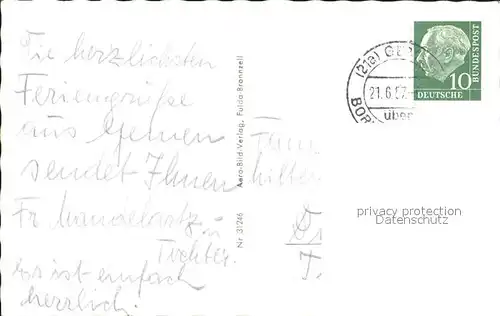 Die herzlichsten
Feriengrüße
aus Gemen
sendet Ihnen
Fr
Tochter.
Es ist einfach
herrlich.
Nr 31246 Aero-Bild-Verlag, Fulda-Bronnzell
(21a) GE
21.6.57
BOR
über
10
DEUTSCHE
BUNDESPOST
privacy protection
Datenschutz